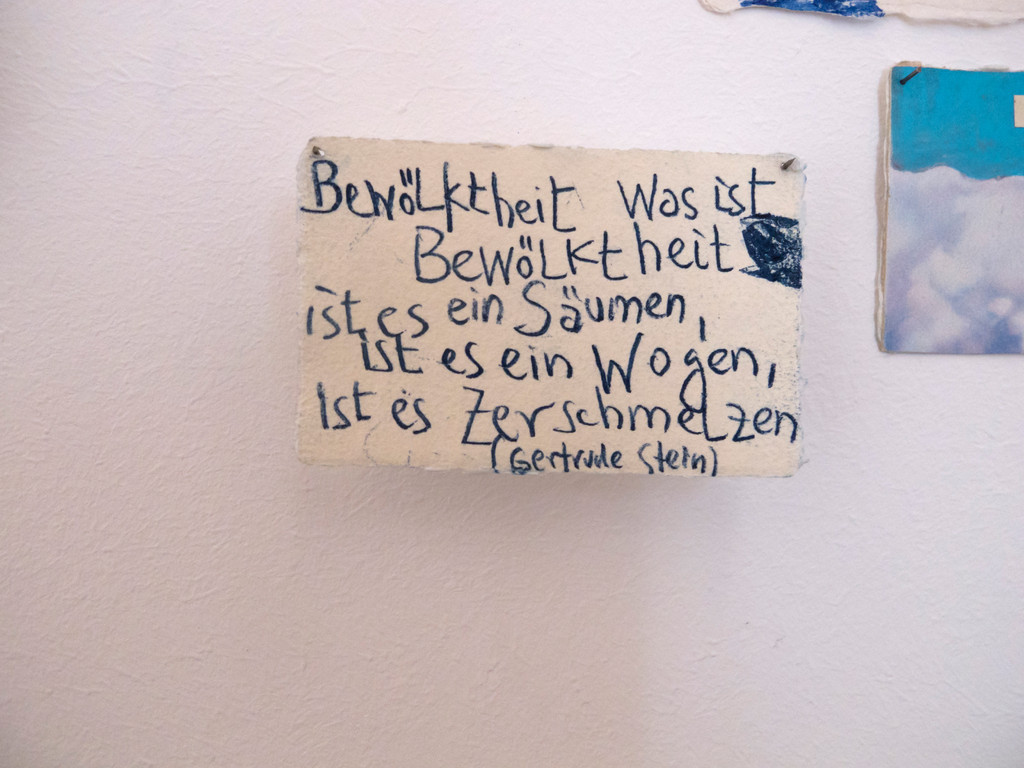 Bewölktheit Was ist
Bewölktheit
ist es ein Säumen,
ist es ein Wogen,
Ist es Zerschmelzen
(Gertrude Stein)